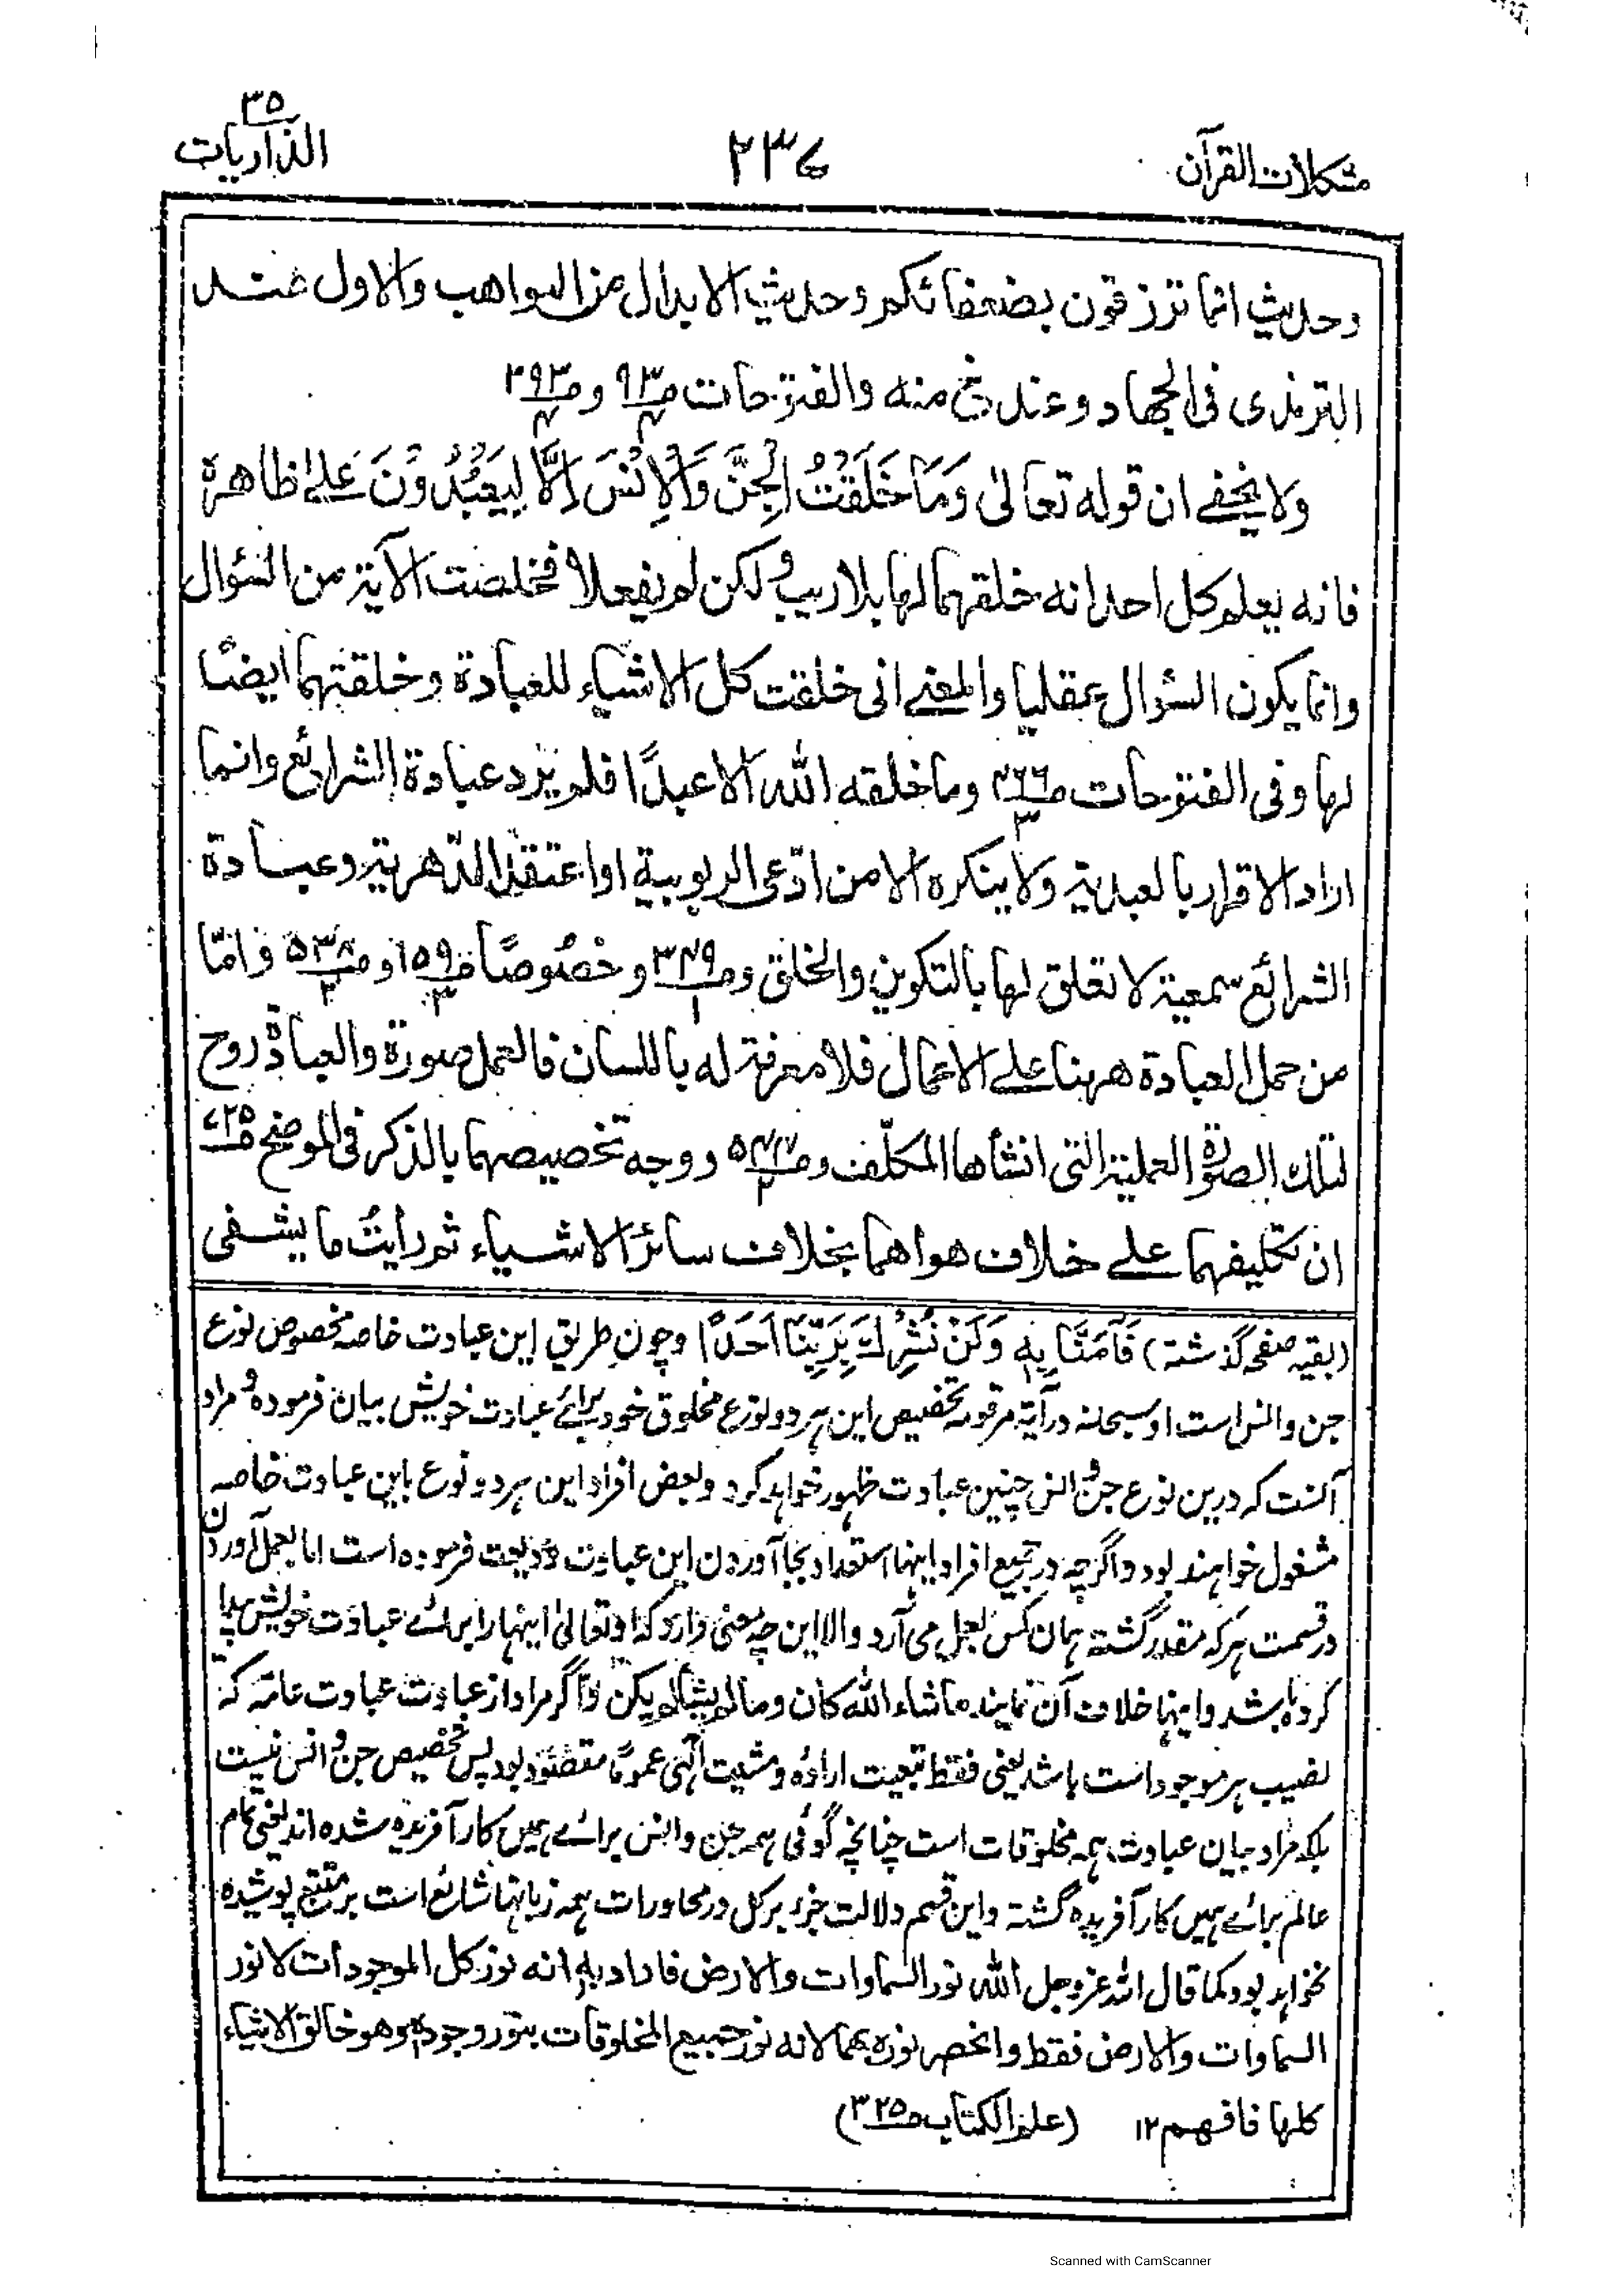 مشكلات القرآن
۲۳۷
۳۵
الذاريات
وحديث انما ترزقون بضعفائكم وحديث الابدال من المواهب والاول عند
الترمذى فى الجهاد وعند خ منه والفتوحات ص۹۳/۴ وص۳۹۳/۴
ولا يخفے ان قوله تعالىٰ وَمَا خَلَقْتُ الْجِنَّ وَالْاِنْسَ اِلَّا لِيَعْبُدُوْنَ علےٰ ظاهرة
فانه يعلم كل احد انه خلقهما لها بلا ريب ولكن لم يفعلا فخلصت الآية من السؤال
وانما يكون السؤال عقليا والمعنے انى خلقت كل الاشياء للعبادة وخلقتهما ايضًا
لها وفى الفتوحات ص۳۶۶/۳ وما خلقه الله الا عبدًا فلم يرد عبادة الشرائع وانما
اراد الاقرار بالعبدية ولا ينكره الا من ادّعى الربوبية او اعتقد الدّهرية وعبادة
الشرائع سمعية لا تعلق لها بالتكوين والخلق وص۳۴۹/۱ وخصُوصًا ص۱۵۹/۳ وص۵۳۸/۲ وامّا
من حمل العبادة ههنا علے الاعمال فلا معرفة له باللسان فالعمل صورة والعبادة روح
لتلك الصورة العملية التى انشأها المكلّف وص /۲ ووجه تخصيصهما بالذكر فى الموضح ص۷۲۵
ان تكليفهما علے خلاف هواهما بخلاف سائر الاشياء ثم رأيتُ ما يشفى
(بقيہ صفحہ گذشتہ) فَآمَنَّا بِهٖ وَلَنْ نُشْرِكَ بِرَبِّنَا اَحَدًا وچون طريق اين عبادت خاصہ مخصوص نوع
جن وانس است او سبحانہ درآيۃ مرقومہ تخصيص اين ہر دو نوع مخلوق خود برائے عبادت خويش بيان فرموده ومراد
آنست كہ درين نوع جن وانس چنين عبادت ظہور خواہد كرد وبعض افراد اين ہر دو نوع باين عبادت خاصہ
مشغول خواہند بود واگرچہ در جميع افراد اينہا استعداد بجا آوردن اين عبادت وديعت فرموده است اما بعمل آوردن
در قسمت ہر كہ مقدر گشتہ ہمان كس بعمل مى آرد والا اين چہ معنى دارد كہ او تعالىٰ اينہا را برائے عبادت خويش پيدا
كرده باشد واينہا خلاف آن نمايند ما شاء الله كان وما لم يشأ لم يكن واگر مراد از عبادت عبادت عامہ كہ
نصيب ہر موجود است باشد يعنى فقط تبعيت اراده ومشيت آلہى عمومًا مقصود بود پس تخصيص جن وانس نيست
بلكہ مراد بيان عبادت ہمہ مخلوقات است چنانچہ گوئى ہمہ جن وانس برائے ہمين كار آفريده شده اند يعنى تمام
عالم برائے ہمين كار آفريده گشتہ واين قسم دلالت جزء بر كل در محاورات ہمہ زبانها شائع است بر متتبع پوشيده
نخواہد بود كما قال الله عزوجل الله نور السماوات والارض فاراد به انه نور كل الموجودات لا نور
السماوات والارض فقط وانحصر نوره بهما لانه نور جميع المخلوقات بنور وجوده وهو خالق الاشياء
كلها فافهم ۱۲ (علم الكتاب ص۳۲۵)
Scanned with CamScanner